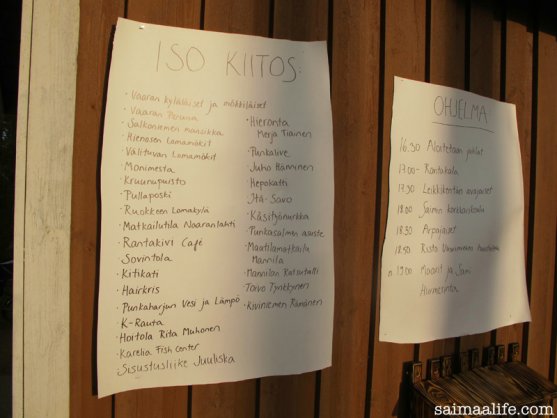 ISO KIITOS:
· Vaaran kyläläiset ja mökkiläiset
· Vaaran Peruna
· Salkoniemen mansikka
· Hienosen Lomamökit
· Välituvan Lomamökit
· Monimesta
· Kruunupuisto
· Pullaposki
· Ruokkeen Lomakylä
· Matkailutila Naaranlahti
· Rantakivi Café
· Sovintola
· Kitikati
· Hairkris
· Punkaharjun Vesi ja Lämpö
· K-Rauta
· Hoitola Rita Muhonen
· Karelia Fish Center
· Sisustusliike Juuliska
· Hieronta
Merja Tiainen
· Punkalive
· Juho Hänninen
· Hepokatti
· Itä-Savo
· Käsityönurkka
· Punkasalmen asuste
· Maatilamatkailu
Mannila
· Mannilan Ratsutalli
· Toivo Tynkkynen
· Kiviniemen Rämänen
OHJELMA:
16.30 Aloitetaan juhlat
17.00- Rantakala
17.30 Leikkikentän avajaiset
18.00 Saimin korkkarikisa
18.30 Arpajaiset
18.50 Risto
n. 19.00 Maarit ja Sami
Hurmerinta
saimaalife.com